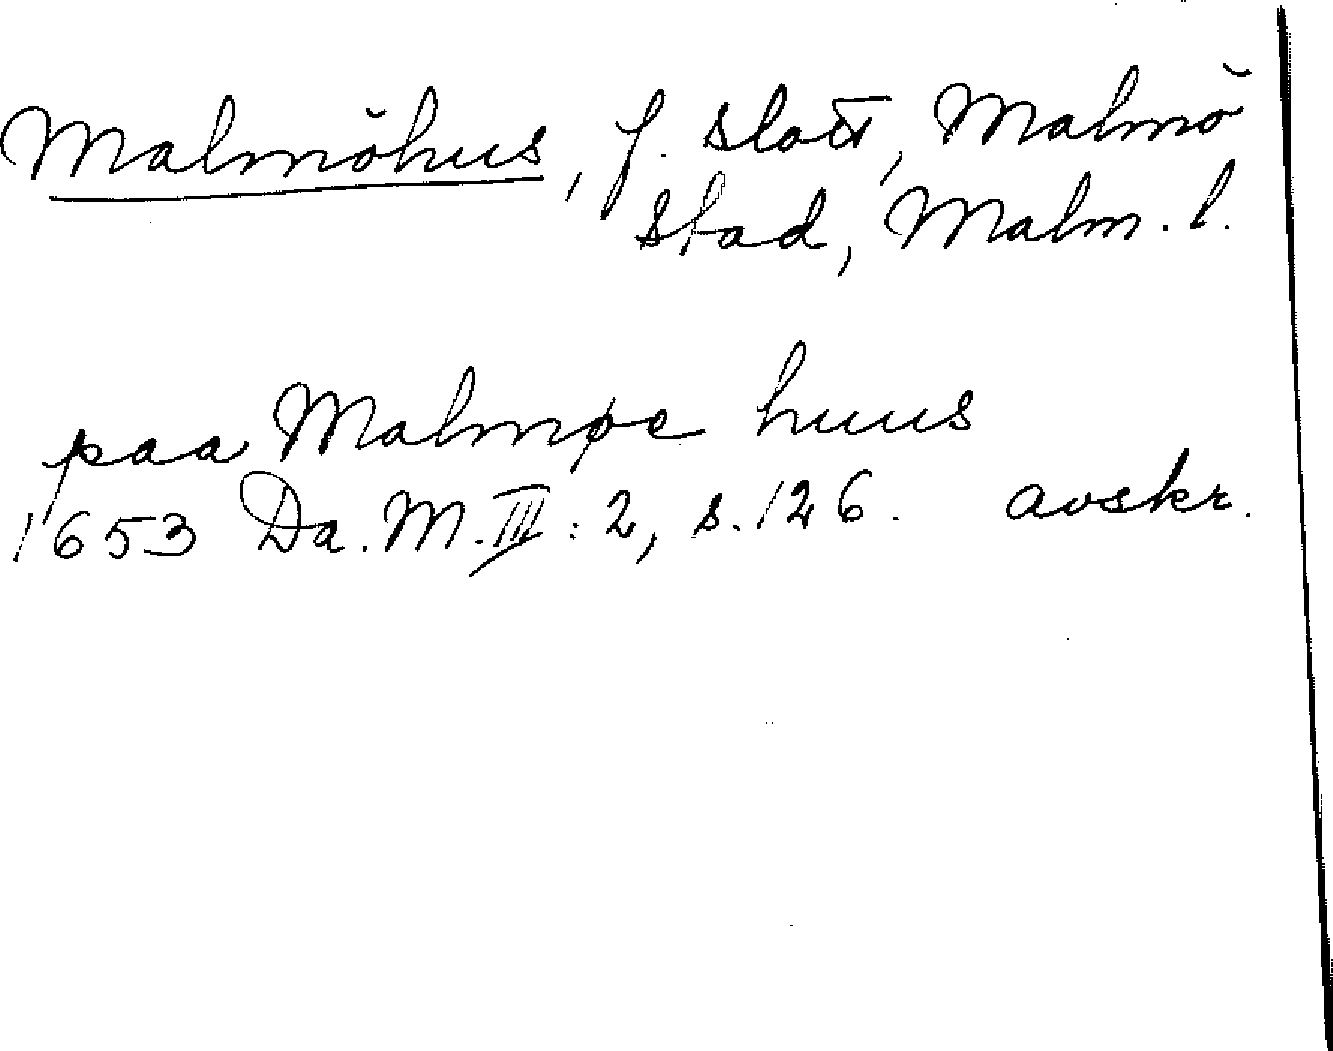 Malmöhus, f. slott, Malmö
stad, Malm. l.
paa Malmøe huus
1653 Da. M. III: 2, s. 126. avskr.